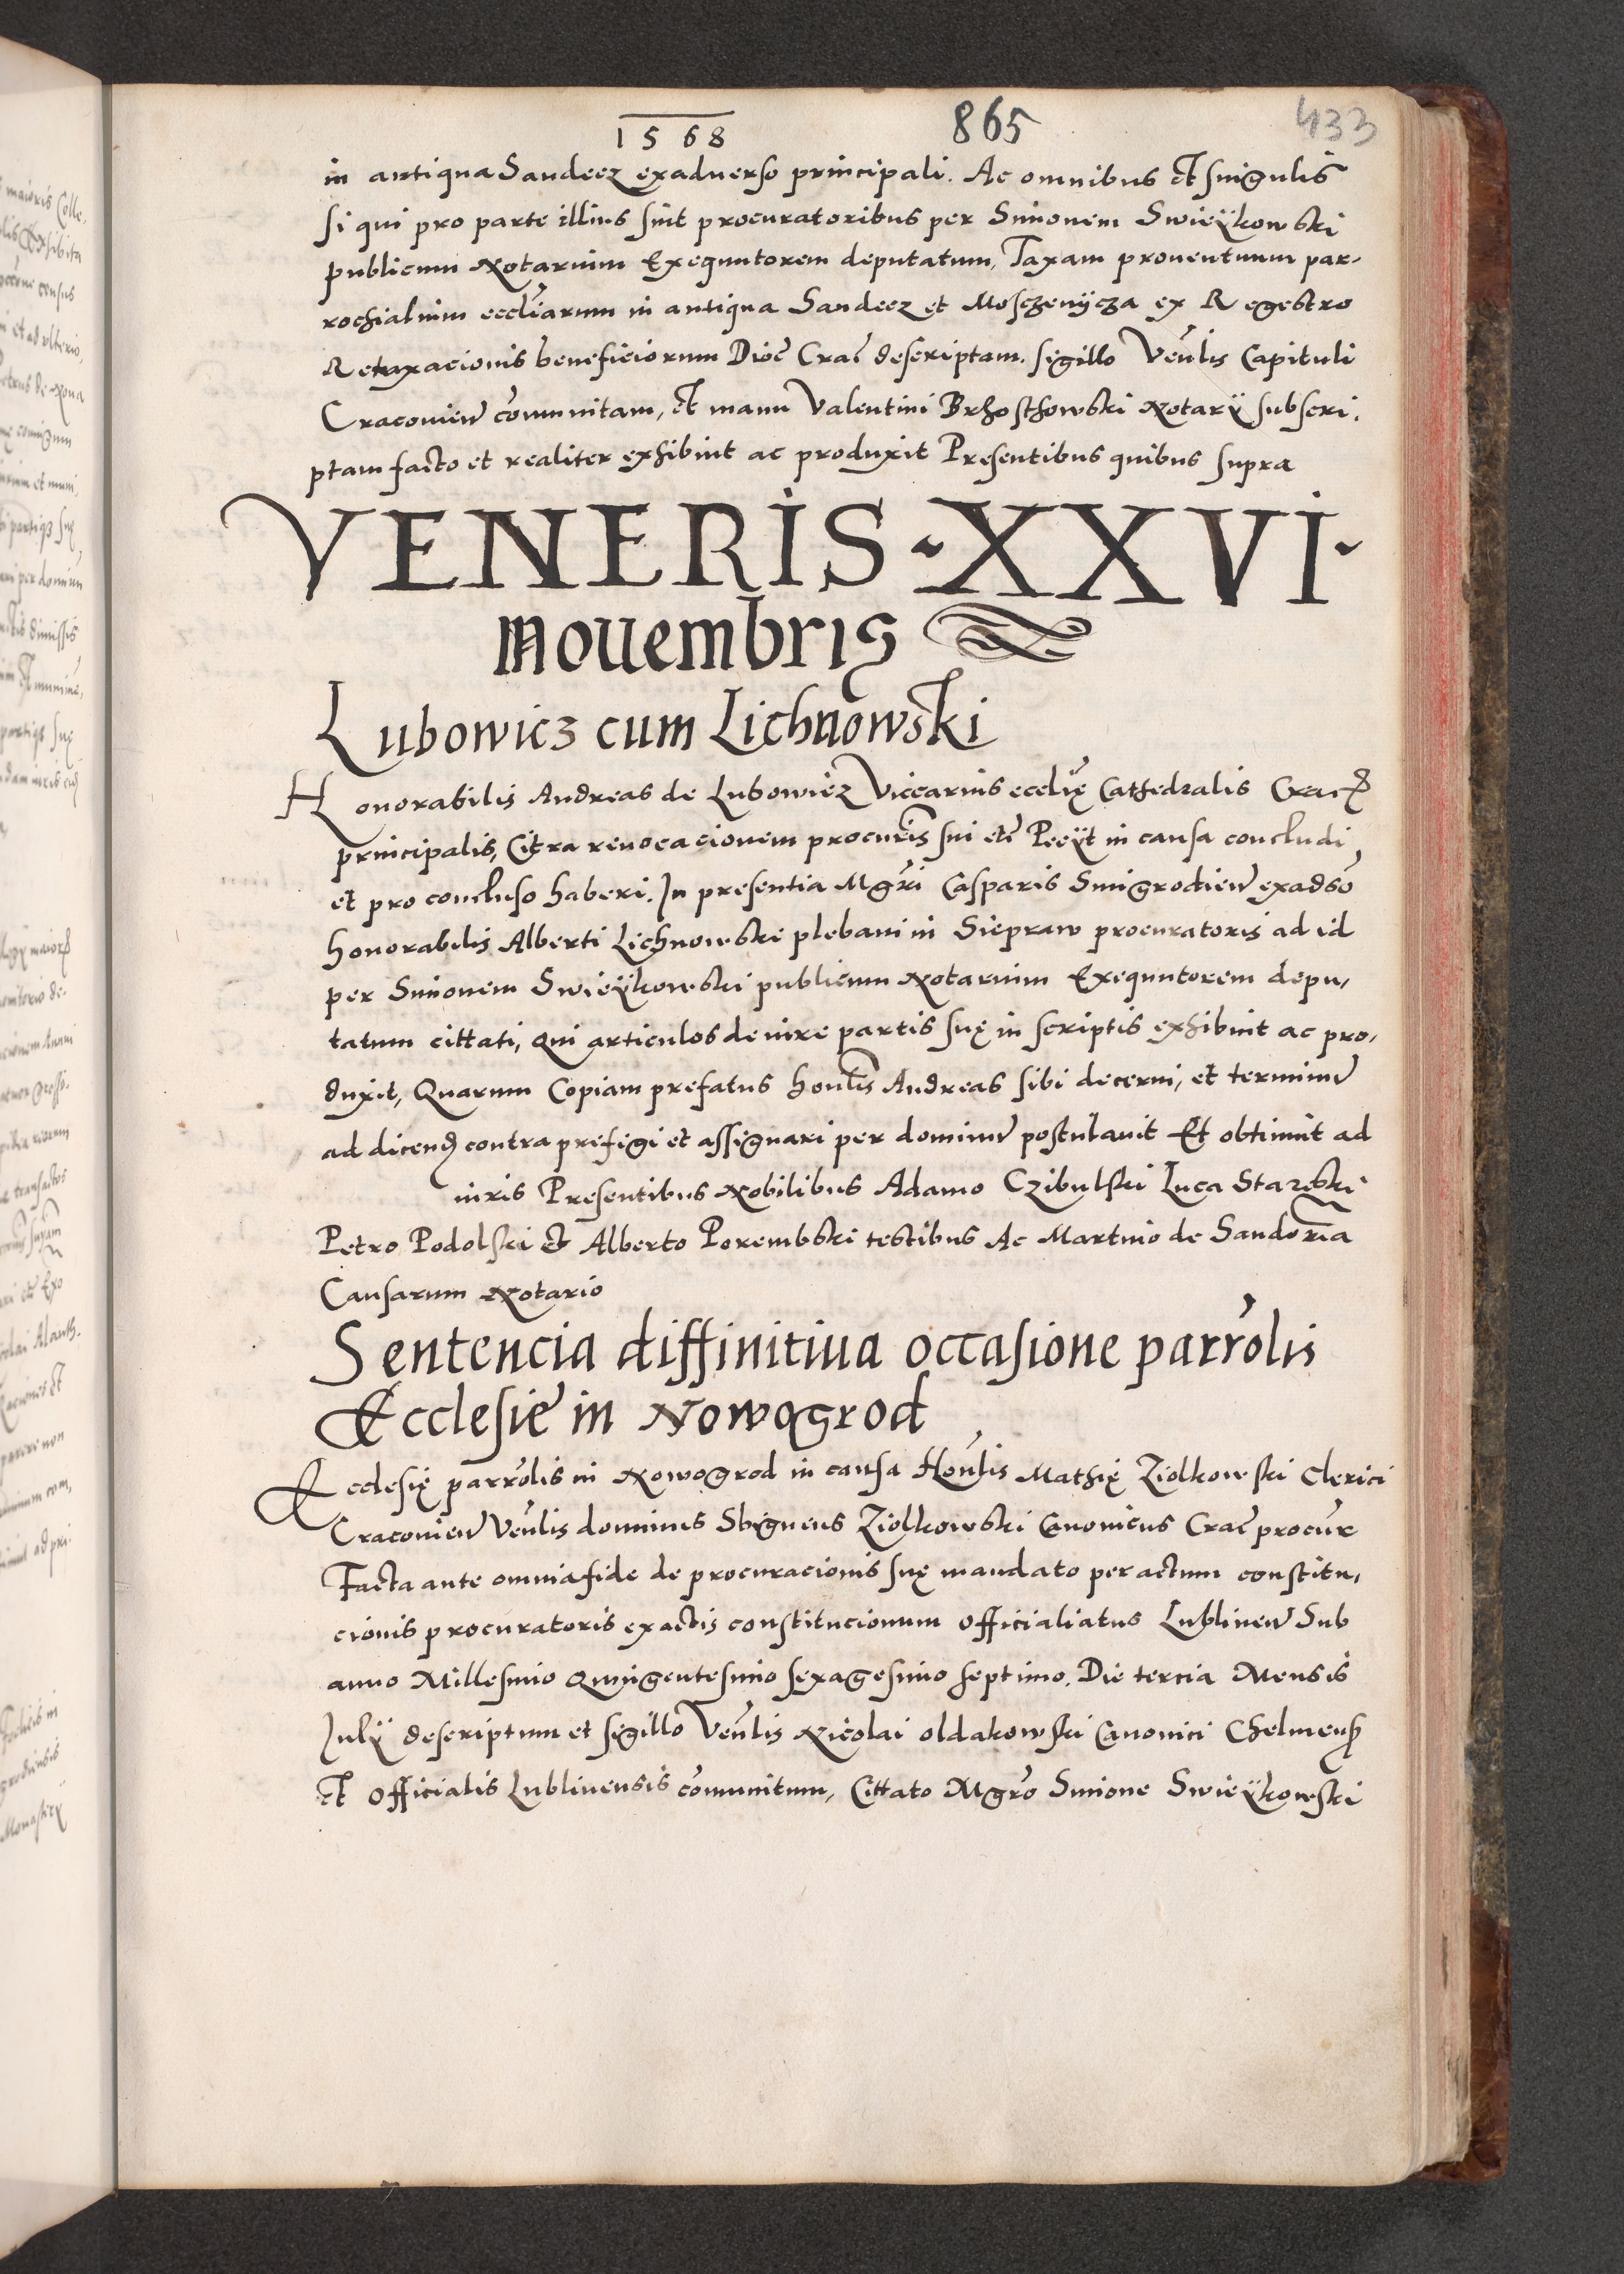 1568 865 433
in antiqua Sandecz exaduerso principali. Ac omnibus et singulis
si qui pro parte illius sint procuratoribus per Simonem Swieÿkowski
publicum Notarium Exequutorem deputatum, Taxam prouentuum par-
rochialium eccliarum in antiqua Sandecz et Moschenÿcza ex Regestro
Retaxacionis beneficiorum Dioc Crac descriptam. sigillo Venlis Capituli
Cracouien comunitam, et manu Valentini Brhosthowski Notarÿ subscri,
ptam facto et realiter exhibuit ac produxit Presentibus quibus supra
VENERIS XXVI
Nouembris
Lubowicz cum Lichnowski
Honorabilis Andreas de Lubowicz Viccarius ecclię Cathedralis Crac
principalis, Citra reuocacionem procuris sui etc Peeÿt in causa concludi
et pro concluso haberi. In presentia Mgri Casparis Smigrodien exadso
honorabilis Alberti Lichnowski plebani in Siepraw procuratoris ad id
per Simonem Swieÿkowski publicum Notarium Exequutorem depu,
tatum cittati, qui articulos de iure partis suę in scriptis exhibuit ac pro,
duxit, Quarum Copiam prefatus honlis Andreas sibi decerni, et terminu
ad dicend contra prefigi et assignari per dominu postulauit Et obtinuit ad
iuris Presentibus Nobilibus Adamo Czibulski Luca Starzski
Petro Podolski & Alberto Porembski testibus Ac Martino de Sandomia
Causarum Notario
Sentencia diffinitiua occasione parrolis
Ecclesię in Nowogrod
Ecclesię parrolis in Nowogrod in causa Honlis Mathię Ziolkowski Clerici
Cracouien Venlis dominus Sbigneus Ziolkowski Canonicus Crac procur
Facta ante omnia fide de procuracionis suę mandato per actum constitu,
cionis procuratoris ex actis constitucionum officialiatus Lublinen Sub
anno Millesimo quingentesimo sexagesimo septimo. Die tercia Mensis
Julÿ descriptum et sigillo Venlis Nicolai oldakowski Canonici Chelmens
Et officialis Lublinensis comunitum, Cittato Mgro Simone Swieÿkowski